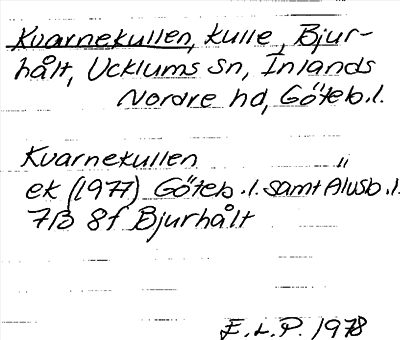 Kvarnekullen, kulle, Bjur-
hålt, Ucklums sn, Inlands
Nordre hd, Göteb.l.
Kvarnekullen "
ek (1977) Göteb.l. samt Älvsb.l.
7B 8f Bjurhålt
E.L.P. 1978